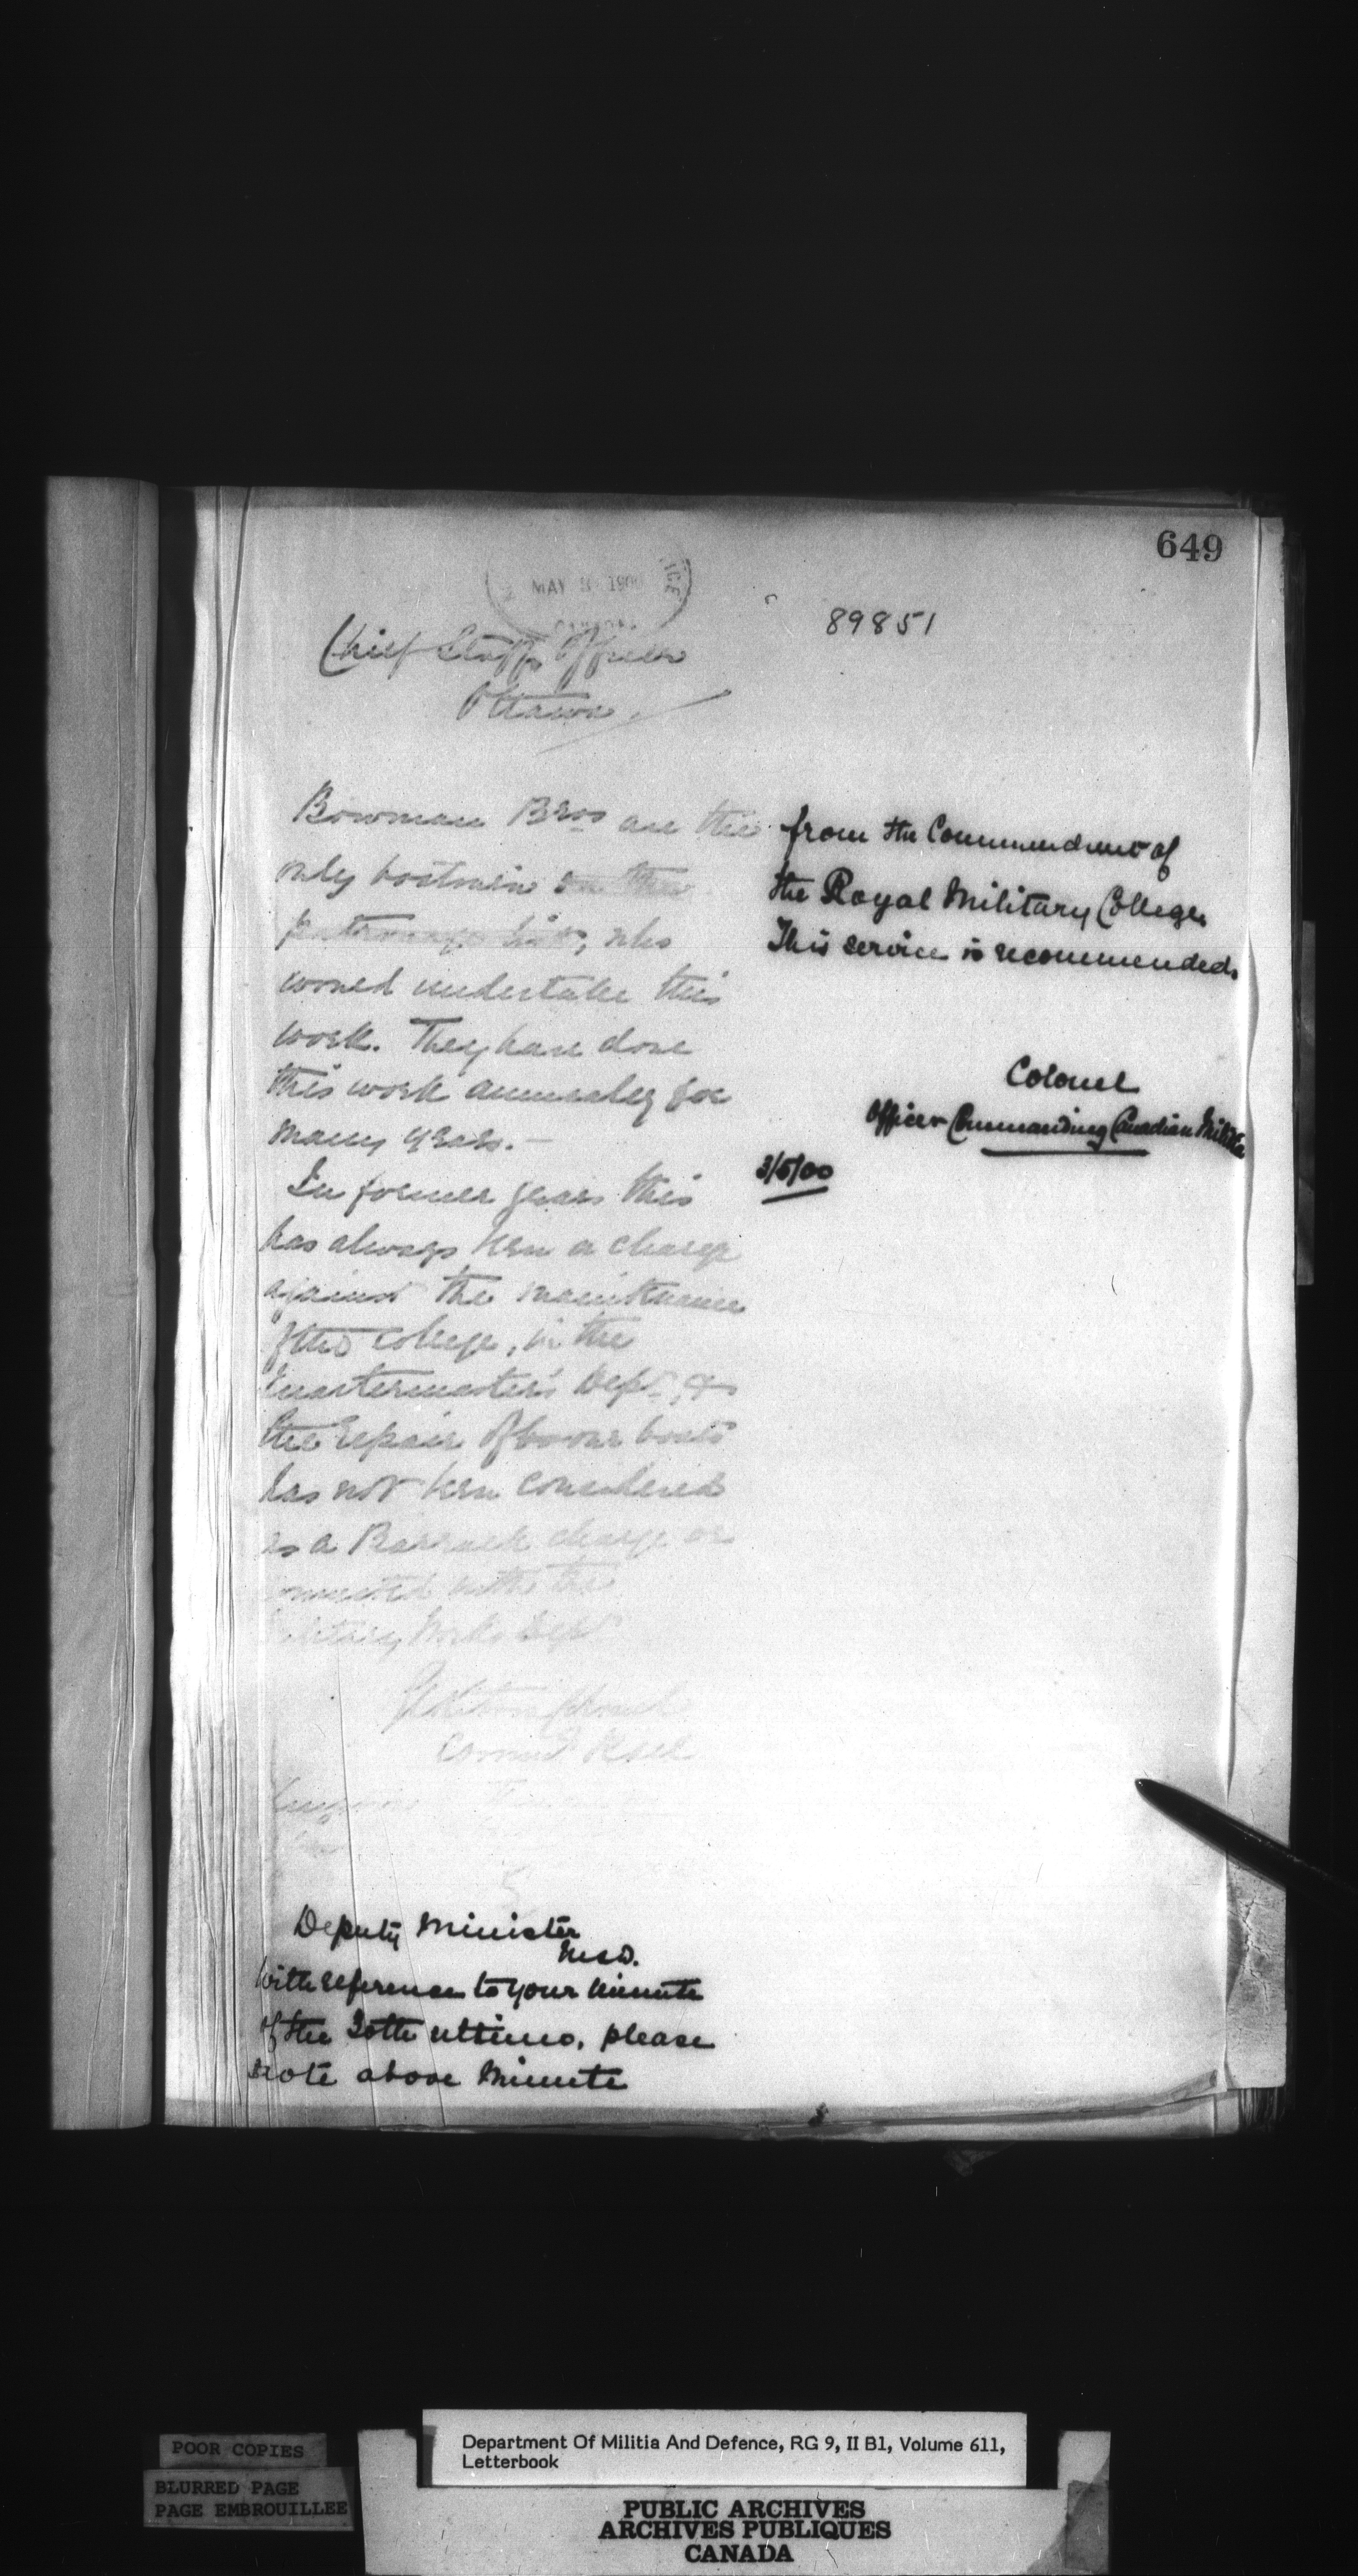 649
MAY 3 1900
89851
Chief Staff Officer
Ottawa
Bowman Bros are the
only boatmen on the
patronage list, who
would undertake this
work. They have done
this work annually for
many years. —
In former years this
has always been a charge
against the maintenance
of the College, in the
Quartermaster's Dept, &
the repair of boats
has not been considered
as a Barrack charge or
connected with the
Military Works Dept
Kingston
Deputy Minister
M&D.
With reference to your minute
of the 20th ultimo, please
note above Minute
from the Commandant of
the Royal Military College.
This service is recommended.
Colonel
Officer Commanding Canadian Militia
3/5/00
POOR COPIES
BLURRED PAGE
PAGE EMBROUILLEE
Department Of Militia And Defence, RG 9, II B1, Volume 611,
Letterbook
PUBLIC ARCHIVES
ARCHIVES PUBLIQUES
CANADA